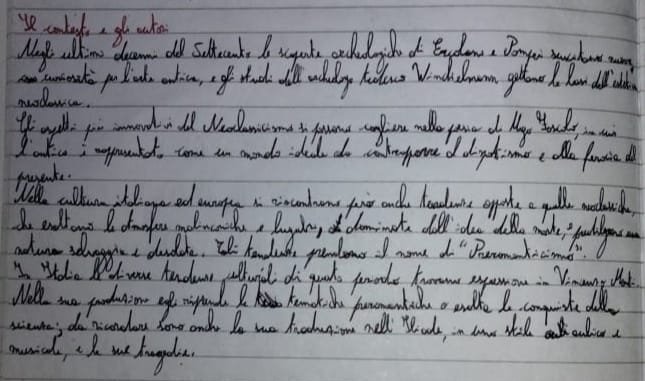 Il contesto e gli autori
Negli ultimi decenni del Settecento le scoperte archeologiche di Ercolano e Pompei suscitarono nuova
curiosità per l'arte antica, e gli studi dell'archeologo tedesco Winchelmann gettano le basi dell'estetica
neoclassica.
Gli aspetti più innovativi del Neoclassicismo si possono cogliere nella poesia di Ugo Foscolo, in cui
l'antico è rappresentato come un mondo ideale da contrapporre al dispotismo e alla ferocia del
presente.
Nella cultura italiana ed europea si riscontrano però anche tendenze opposte a quelle neoclassiche,
che esaltano le atmosfere malinconiche e lugubri, dominate dall'idea della morte, e prediligono una
natura selvaggia e desolata. Tali tendenze prendono il nome di "Preromanticismo".
In Italia le diverse tendenze culturali di questo periodo trovano espressione in Vincenzo Monti.
Nella sua produzione egli riprende le tematiche preromantiche o esalta le conquiste della
scienza; da ricordare sono anche la sua traduzione dell'Iliade, in uno stile aulico e
musicale, e le sue tragedie.